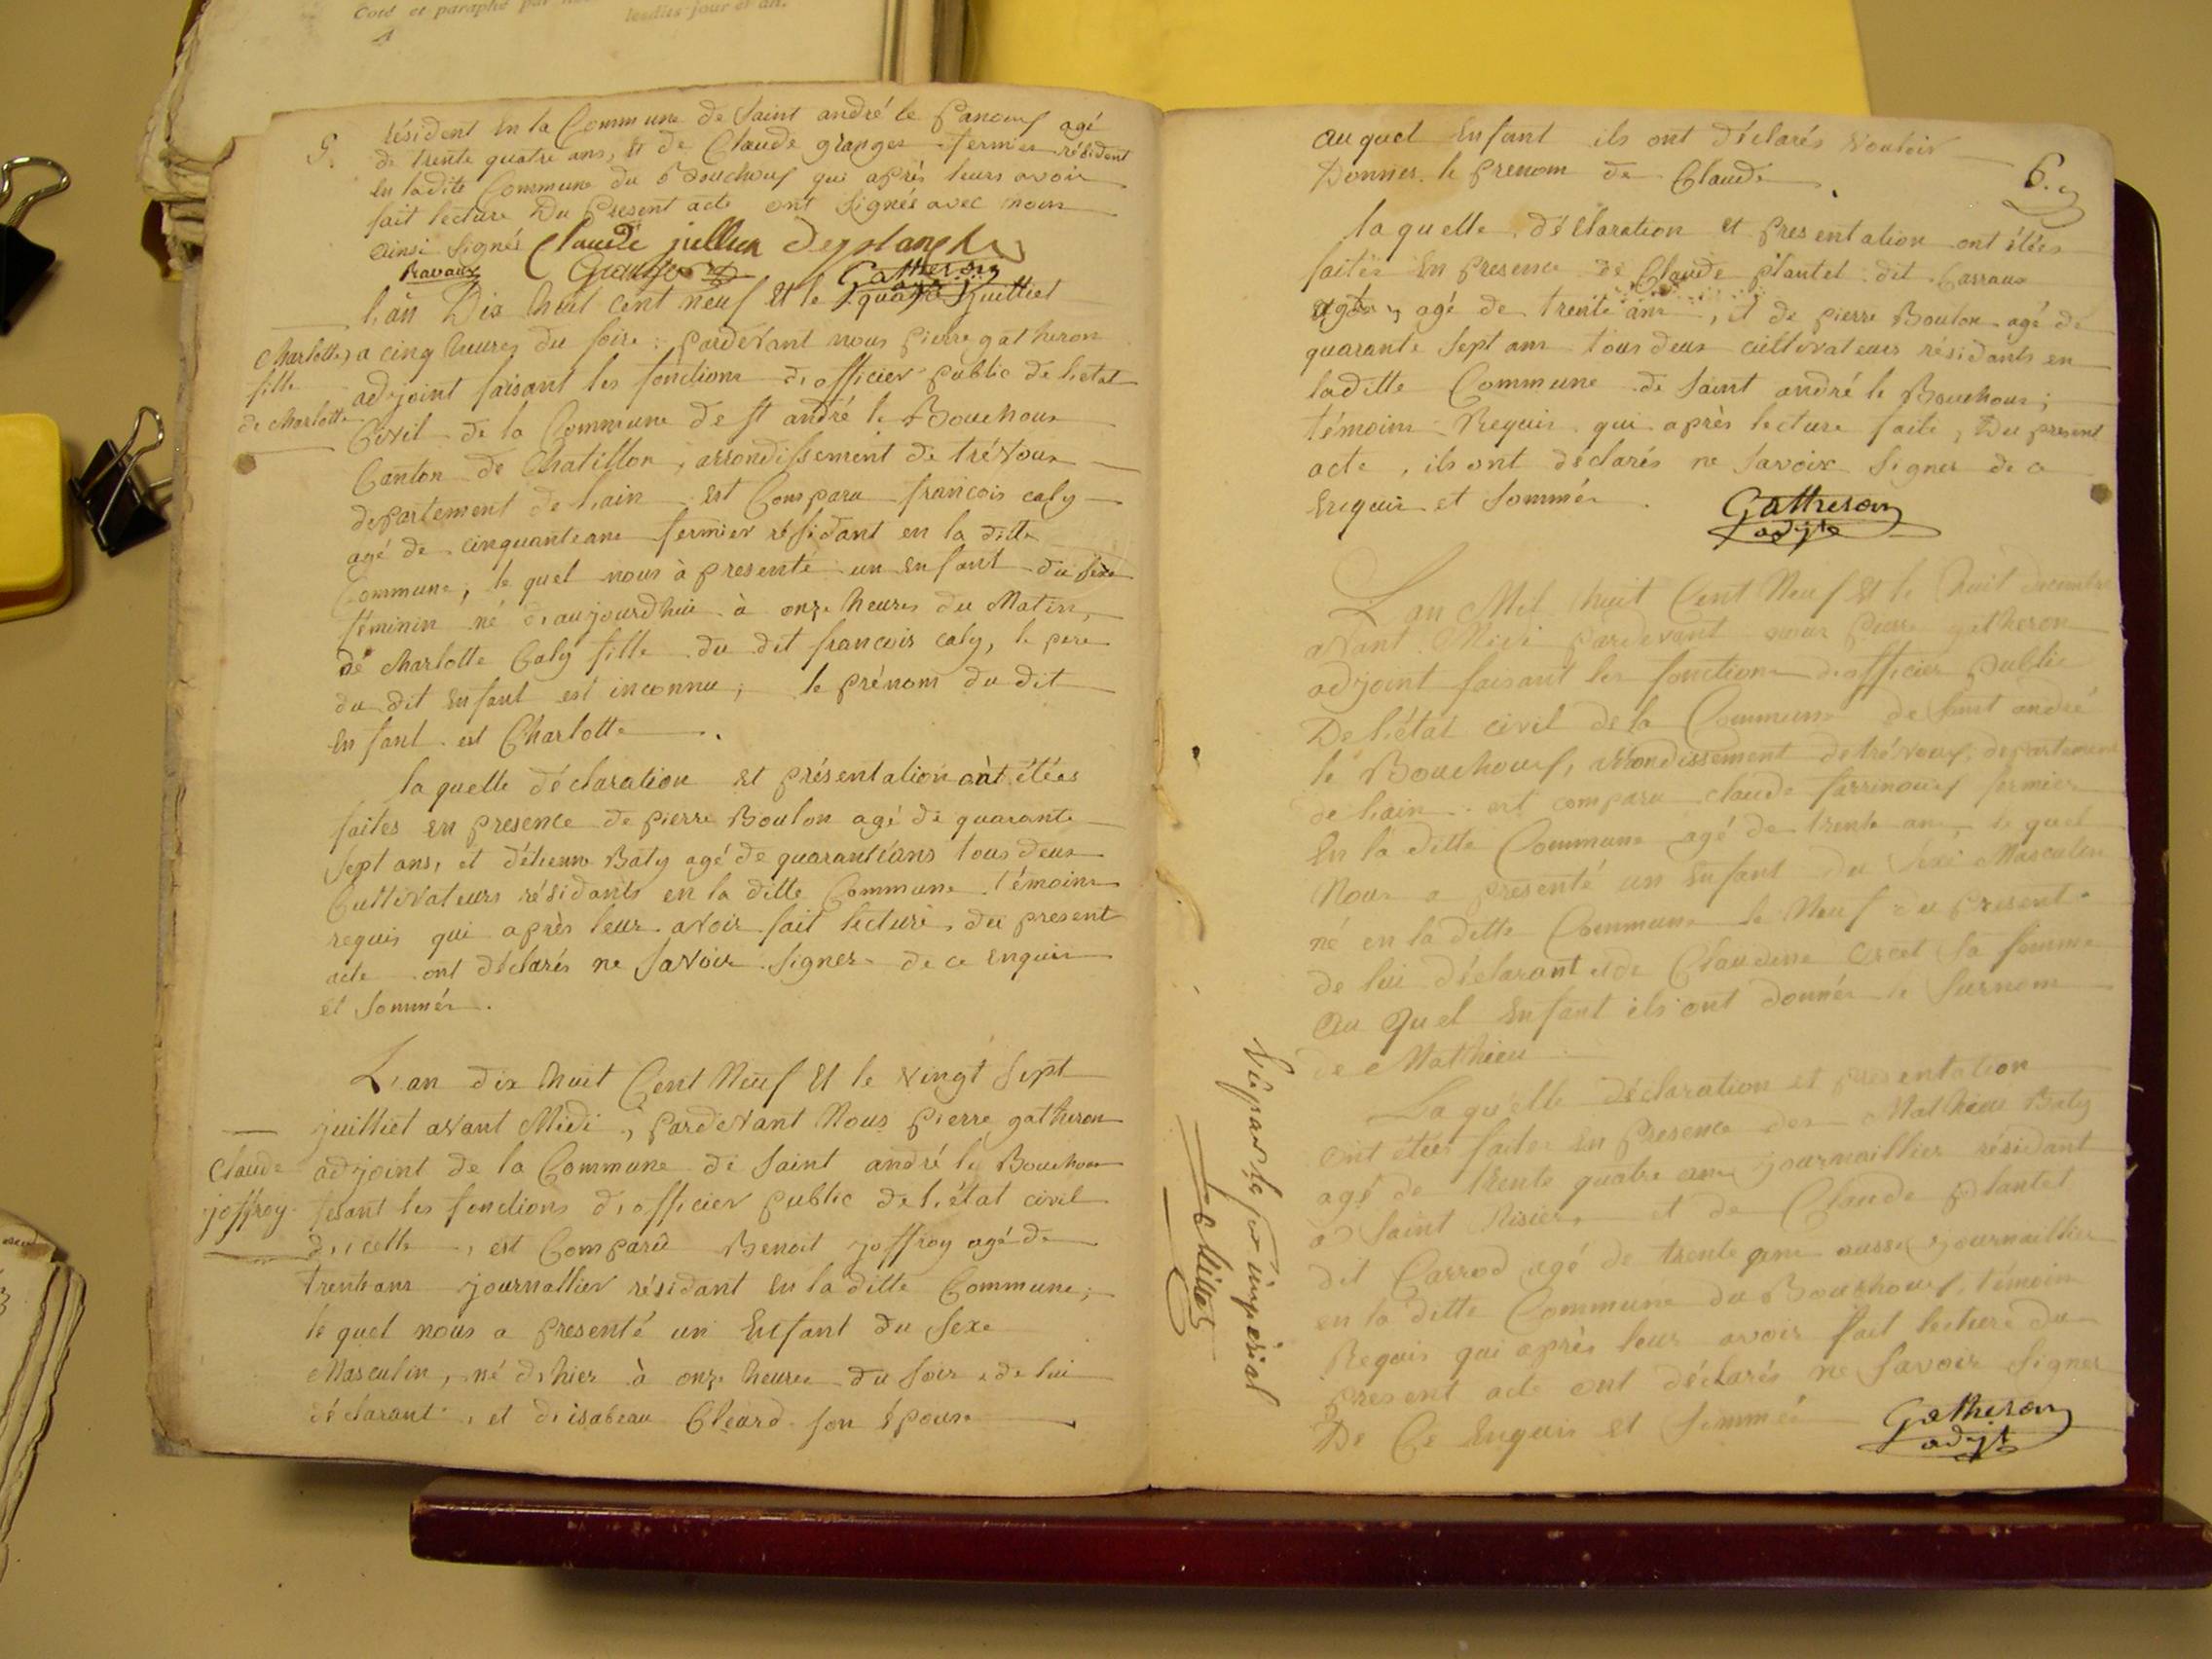 Coté et paraphé par
lesdits jour et an.
5.
résident en la Commune de saint andré le panoux agé
de trente quatre ans, et de Claude granger fermier résident
en ladite Commune du Bouchoux qui après leurs avoir
fait lecture Du Present acte ont Signés avec nous
ainsi Signés Claude jullien
Ravaux Granger Gatheron
l'an Dix huit cent neuf Et le quatre juilliet
Charlotte
fille
de charlotte
a cinq heures du soire; pardevant nous pierre gatheron
adjoint faisant les fonctions d'officier public de l'etat
Civil de la Commune de st andré le Bouchoux
Canton de Chatillon, arrondissement de trévoux
departement de l'ain est Comparu francois caly
agé de cinquanteans fermier résidant en la ditte
Commune, le quel nous à presenté un enfant du sexe
féminin né d'aujourdhuit à onze heures du Matin,
de charlotte Caly fille du dit francois caly, le pere
du dit enfant est inconnu, le prénom du dit
enfant est Charlotte.
laquelle déclaration et présentation ont étées
faites en presence de pierre Boulon agé de quarante
Sept ans, et d'étienne Baty agé de quaranteans tous deux
Cultivateurs résidants en la ditte Commune témoins
requis qui après leur avoir fait lecture du present
acte ont déclarés ne savoir signer de ce enquis
et sommés.
L'an dix huit Cent Neuf Et le vingt sept
juilliet avant Midi, pardevant Nous pierre gatheron
Claude
joffroy
adjoint de la Commune de saint andré le Bouchoux
fesant les fonctions d'officier public de l'état civil
d'icelle, est Comparû Benoit joffroy agé de
trenteans journallier résidant en la ditte Commune,
le quel nous a presenté un Enfant du sexe
Masculin, né d'hier à onze heures du soir de lui
déclarant, et d'isabeau Cleard son épouse
6.
auquel enfant ils ont déclarés vouloir
Donner le prenom de Claude.
laquelle déclaration et presentation ont étées
faites en presence de Claude plantet dit Carraux
agé de trente ans, et de pierre Boulon agé de
quarante sept ans tous deux cultivateurs résidants en
laditte Commune de saint andré le Bouchoux;
témoins Requis qui après lecture faite, Du present
acte, ils ont déclarés ne savoir signer de ce
Enquis et sommés
Gatheron
adjt
L'an Mil huit Cent Neuf Et le huit decembre
avant Midi pardevant nous pierre gatheron
adjoint faisant les fonctions d'officier public
De l'état civil de la Commune de saint andré
le Bouchoux, arrondissement de trévoux, departement
de l'ain est comparu claude farrinoux fermier
en la ditte Commune agé de trente ans, le quel
Nous a presenté un enfant du Sexe Masculin
né en la ditte Commune le Neuf du present
de lui déclarant et de Claudine sa femme
au quel enfant ils ont donnés le surnom
de Mathieu
Laqu'elle déclaration et presentation
ont étées faites en presence de Mathieu Baty
agé de trente quatre ans journaillier résidant
à saint Nisier et de Claude plantet
dit Carrod agé de trente ans aussi journaillier
en la ditte Commune du Bouchoux, témoin
Requis qui après leur avoir fait lecture du
present acte ont déclarés ne savoir signer
De Ce enquis et sommés
Gatheron
adjt
Vu par le impérial